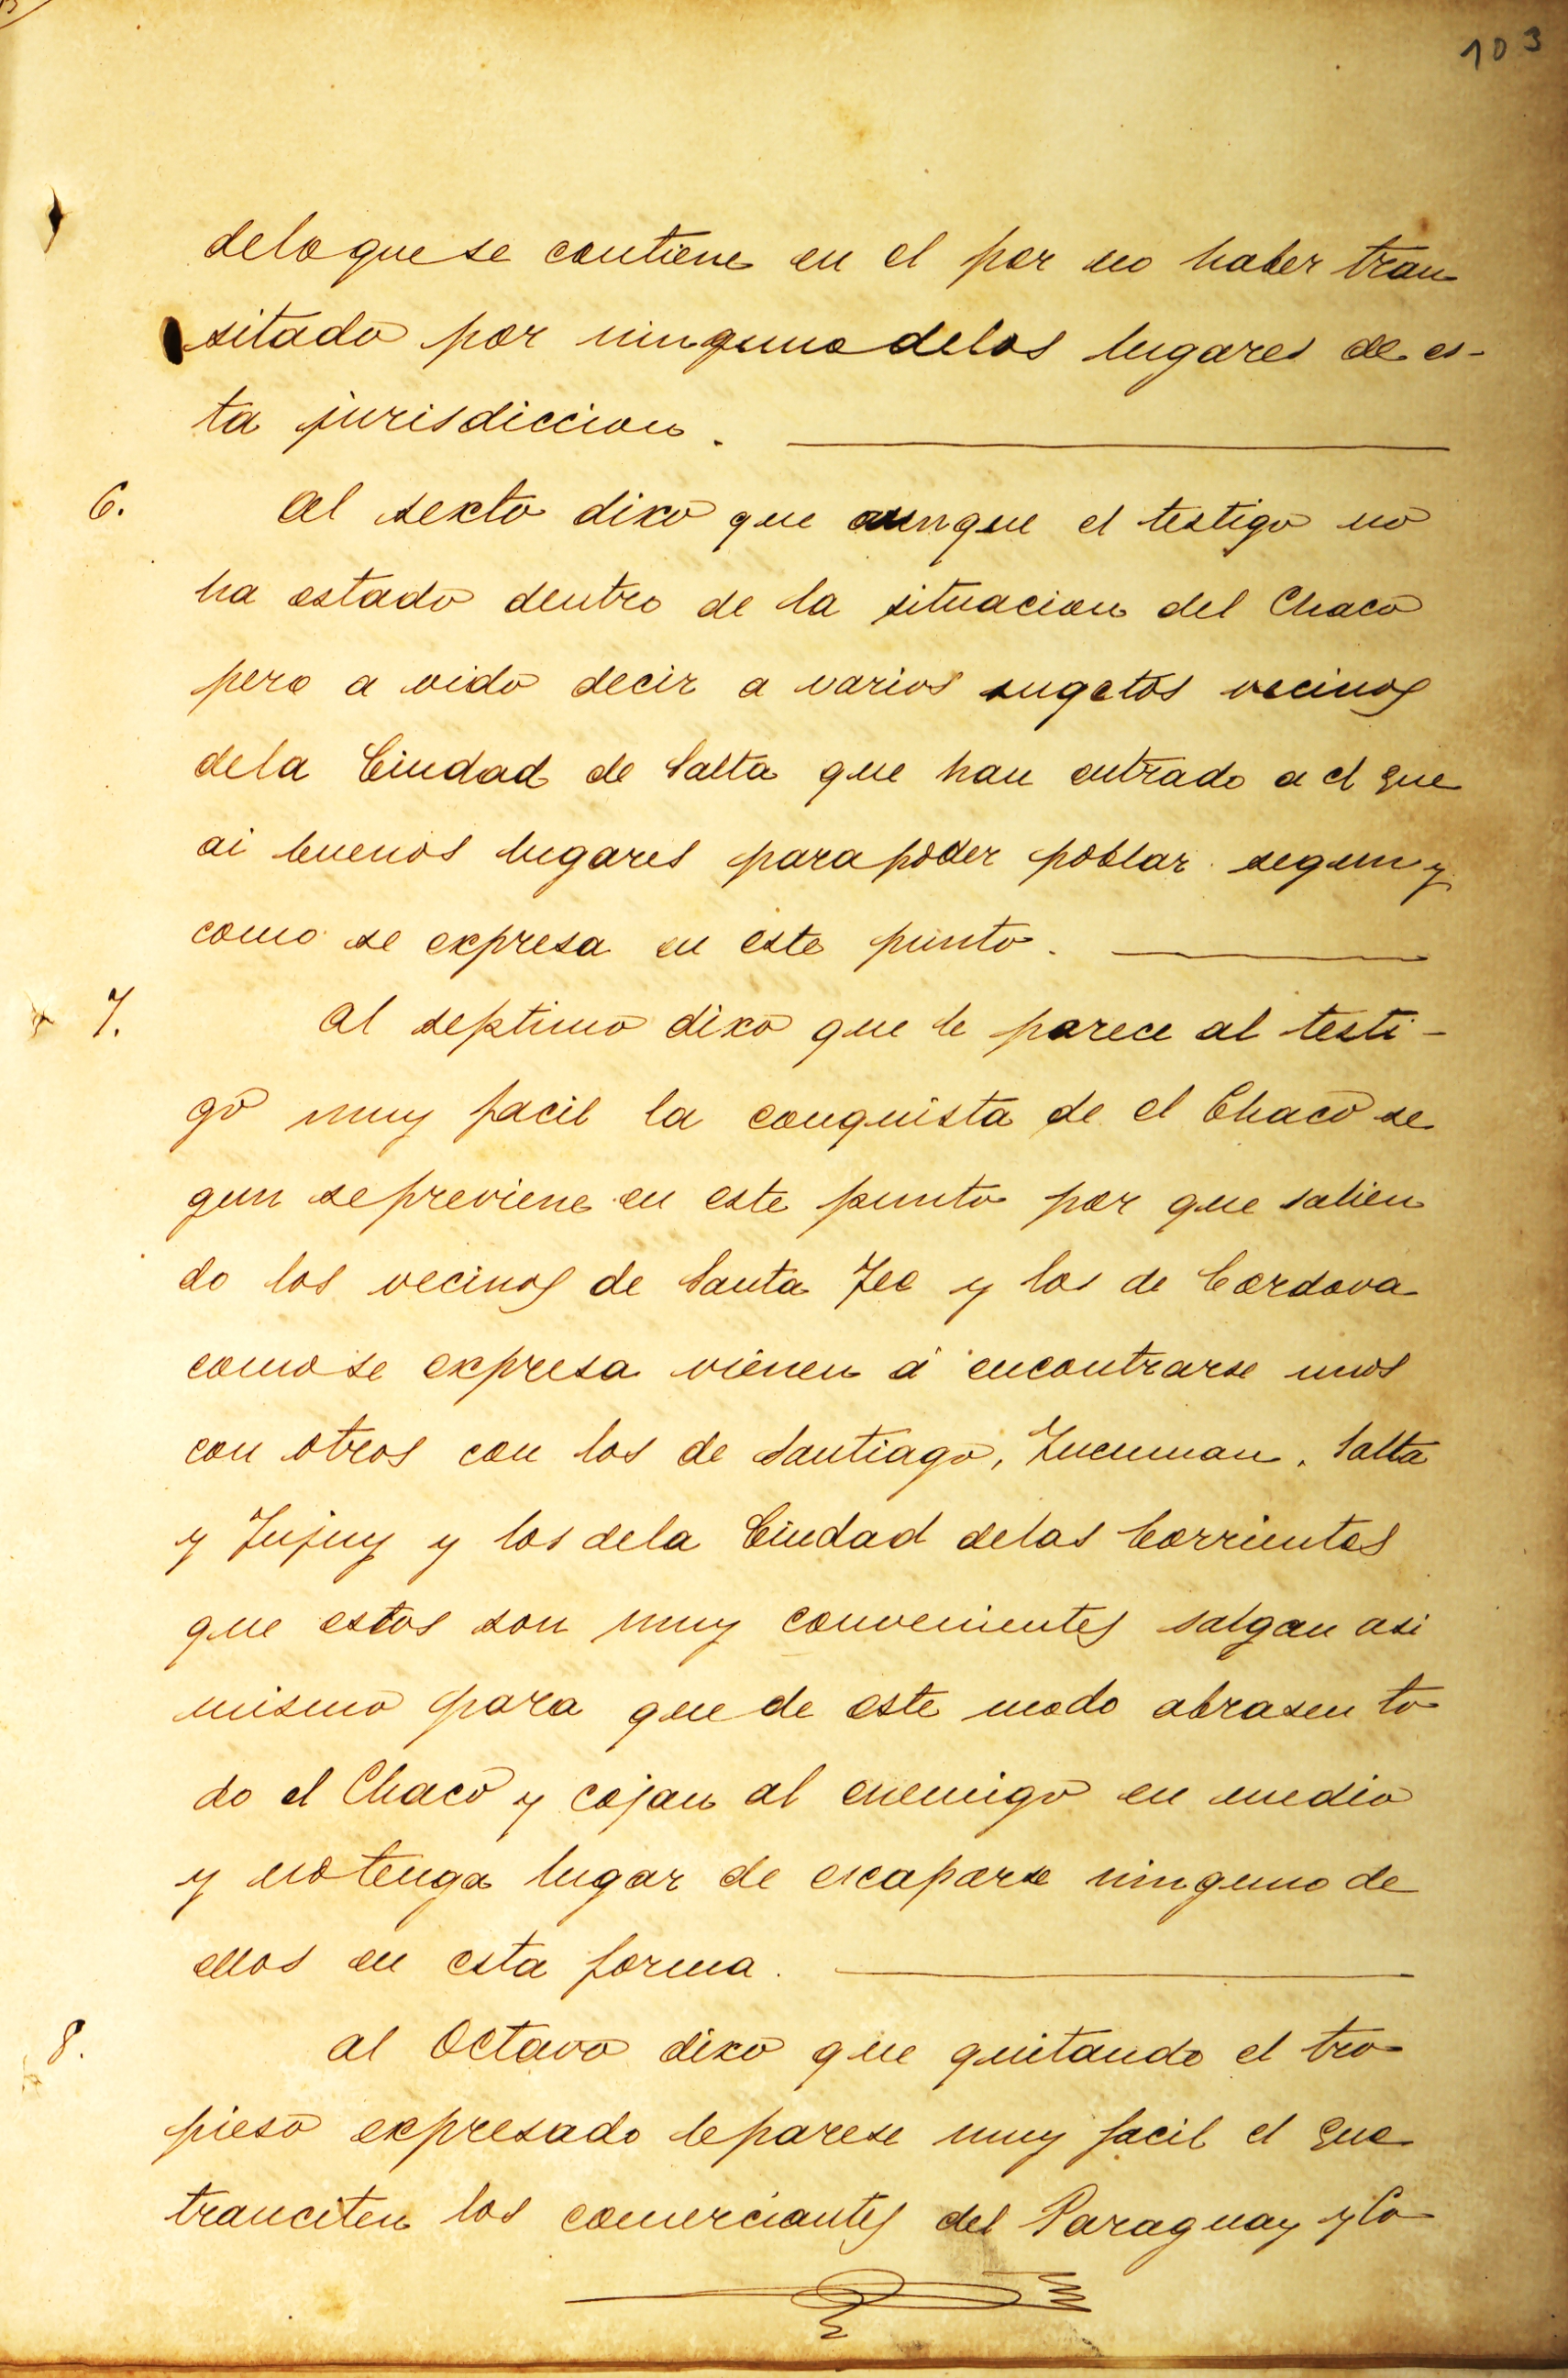 103
deloquese contiene en el por no haber tran
sitado por ninguno delos lugares de es-
ta jurisdiccion.
6. Al sexto dixo que aunque el testigo no
ha estado dentro de la situacion del Chaco
pero a oido decir a varios sugetos vecinos
dela Ciudad de Salta que han entrado a el que
ai buenos lugares parapoder poblar segun y
como se expresa en este punto.
7. Al septimo dixo que le parece al testi-
go muy facil la conquista de el Chaco se
gun sepreviene en este punto por que salien
do los vecinos de Santa Fee y los de Cordova
comose expresa vienen á encontrarse unos
con otros con los de Santiago, Tucuman, Salta
y Jujuy y los dela Ciudad delas Corrientes
que estos son muy convenientes salgan asi
mismo para que de este modo abrasen to
do el Chaco y cojan al enemigo en medio
y notenga lugar de escaparse ninguno de
ellos en esta forma.
8. al Octavo dixo que quitando el tro
pieso expresado leparese muy facil el que
tranciten los comerciantes del Paraguay y Co